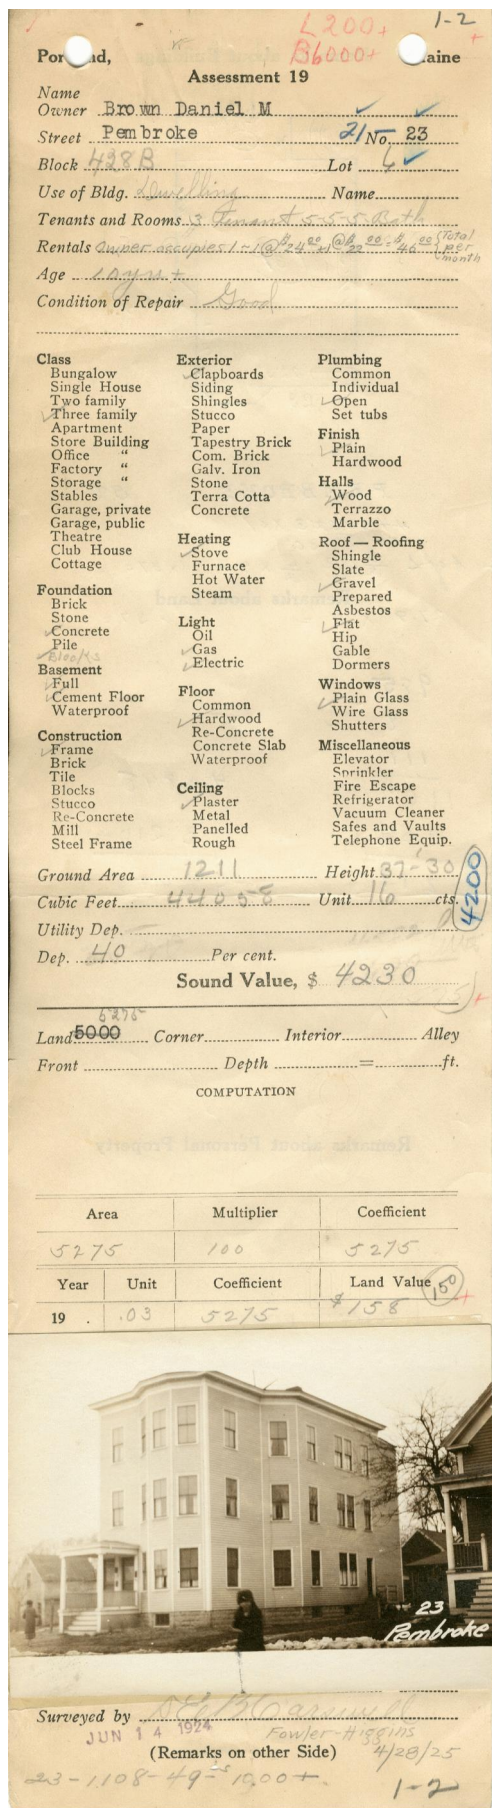 L 200+
1-2
B 6000+
Portland, Maine
Assessment 19
Name
Owner Brown Daniel M
Street Pembroke 21- No. 23
Block 428B Lot 6
Use of Bldg. Dwelling Name
Tenants and Rooms 3 Tenant 5-5-5 Bath
Rentals Owner occupies 1-1@$24.00+1@$22.00=$46.00 {Total per month
Age 10 yrs +
Condition of Repair Good
Class
Bungalow
Single House
Two family
Three family
Apartment
Store Building
Office "
Factory "
Storage "
Stables
Garage, private
Garage, public
Theatre
Club House
Cottage
Foundation
Brick
Stone
Concrete
Pile
Blocks
Basement
Full
Cement Floor
Waterproof
Construction
Frame
Brick
Tile
Blocks
Stucco
Re-Concrete
Mill
Steel Frame
Exterior
Clapboards
Siding
Shingles
Stucco
Paper
Tapestry Brick
Com. Brick
Galv. Iron
Stone
Terra Cotta
Concrete
Heating
Stove
Furnace
Hot Water
Steam
Light
Oil
Gas
Electric
Floor
Common
Hardwood
Re-Concrete
Concrete Slab
Waterproof
Ceiling
Plaster
Metal
Panelled
Rough
Plumbing
Common
Individual
Open
Set tubs
Finish
Plain
Hardwood
Halls
Wood
Terrazzo
Marble
Roof — Roofing
Shingle
Slate
Gravel
Prepared
Asbestos
Flat
Hip
Gable
Dormers
Windows
Plain Glass
Wire Glass
Shutters
Miscellaneous
Elevator
Sprinkler
Fire Escape
Refrigerator
Vacuum Cleaner
Safes and Vaults
Telephone Equip.
Ground Area 1211 Height 37-30
Cubic Feet 44058 Unit 16 cts.
4200
Utility Dep.
Dep. 40 Per cent.
Sound Value, $ 4230
5275
Land 5000 Corner Interior Alley
Front Depth = ft.
COMPUTATION
Area Multiplier Coefficient
5275 100 5275
Year Unit Coefficient Land Value 150
19 . .03 5275 $158
23
Pembroke
Surveyed by
JUN 14 1924
Fowler-Higgins
(Remarks on other Side) 4/28/25
23-1108-49- 1000+
1-2